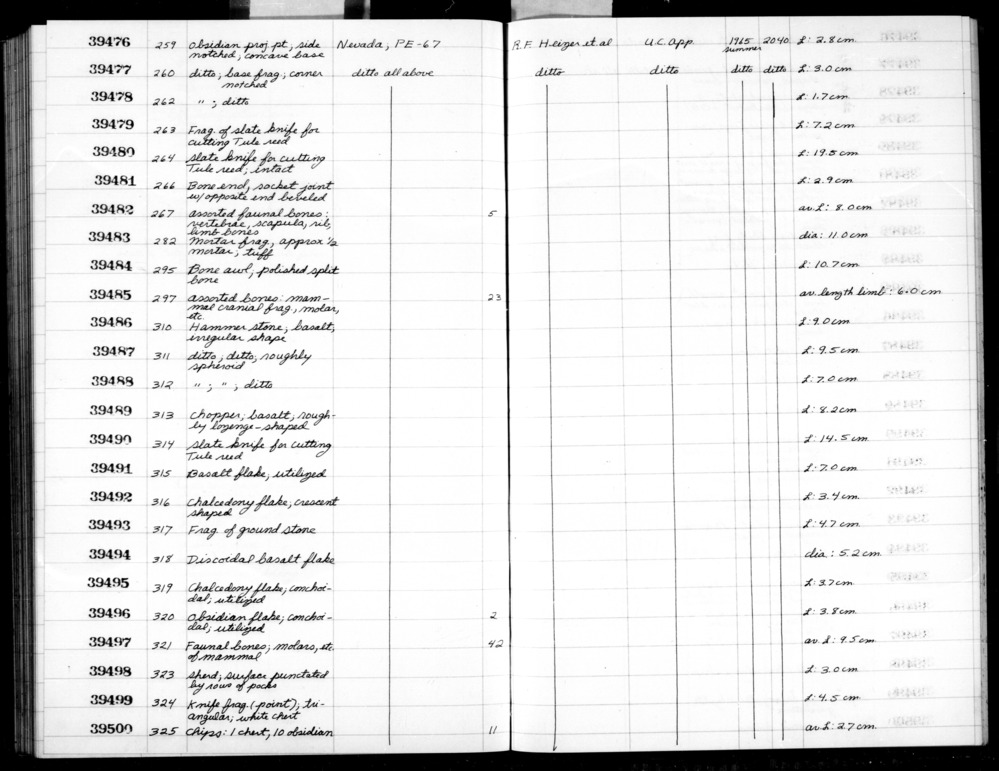 39476 259 Obsidian proj pt; side Nevada, PE-67 R.F. Heizer et al U.C. App. 1965 2040 L: 2.8 cm.
notched; concave base summer
39477 260 ditto; base frag; corner ditto all above ditto ditto ditto ditto L: 3.0 cm
notched
39478 262 " ; ditto L: 1.7 cm.
39479 263 Frag. of slate knife for L: 7.2 cm.
cutting Tule reed
39480 264 slate knife for cutting L: 19.5 cm.
Tule reed; intact
39481 266 Bone end, socket joint L: 2.9 cm.
w/opposite end beveled
39482 267 assorted faunal bones: 5 av. L: 8.0 cm.
vertebrae, scapula, rib,
limb bones
39483 282 Mortar frag., approx 1/2 dia: 11.0 cm
mortar; tuff
39484 295 Bone awl, polished split L: 10.7 cm.
bone
39485 297 assorted bones: mam- 23 av. length limb: 6.0 cm
mal cranial frag., molar,
etc.
39486 310 Hammer stone; basalt; L: 9.0 cm.
irregular shape
39487 311 ditto; ditto; roughly L: 9.5 cm.
spheroid
39488 312 " ; " ; ditto L: 7.0 cm
39489 313 Chopper; basalt; rough- L: 8.2 cm
ly lozenge-shaped
39490 314 slate knife for cutting L: 14.5 cm.
Tule reed
39491 315 Basalt flake; utilized L: 7.0 cm
39492 316 Chalcedony flake; crescent L: 3.4 cm
shaped
39493 317 Frag. of ground stone L: 4.7 cm
39494 318 Discoidal basalt flake dia: 5.2 cm
39495 319 Chalcedony flake; conchoi- L: 3.7 cm
dal; utilized
39496 320 Obsidian flake; conchoi- 2 L: 3.8 cm
dal; utilized
39497 321 Faunal bones; molars, etc. 42 av. L: 9.5 cm
of mammal
39498 323 Sherd; surface punctated L: 3.0 cm
by rows of pocks
39499 324 Knife frag. (point); tri- L: 4.5 cm
angular; white chert
39500 325 Chips: 1 chert, 10 obsidian 11 av. L: 2.7 cm